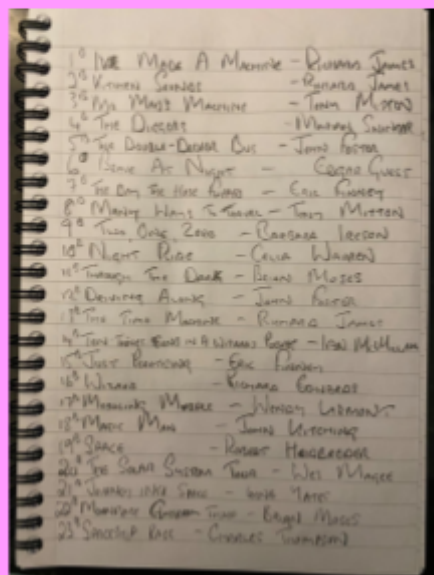 1° I've Made A Machine - Richard James
2° Kitchen Sounds - Richard James
3° Mr Mad's Machine - Tony Mitton
4° The Diggers
5° The Double-Decker Bus - John Foster
6° At Night - Edgar Guest
7° The Day The Hose - Eric Finney
8° Many Ways To Travel - Tony Mitton
9° Two, One, Zero - Barbara Ireson
10° Night Ride - Celia Warren
11° Through The Dark - Brian Moses
12° Driving Along - John Foster
13° The Time Machine - Richard James
14° Ten Things Found in A Wizards Pocket - Ian McMillan
15° Just Practicing - Eric Finney
16° Wizard - Richard Edwards
17° Marble - Wendy Larmont
18° Magic Man - John Kitching
19° Space - Robert Heidbreder
20° The Solar System Tour - Wes Magee
21° Journey into Space
22° - Brian Moses
23° Spaceship Race - Charles Thompson